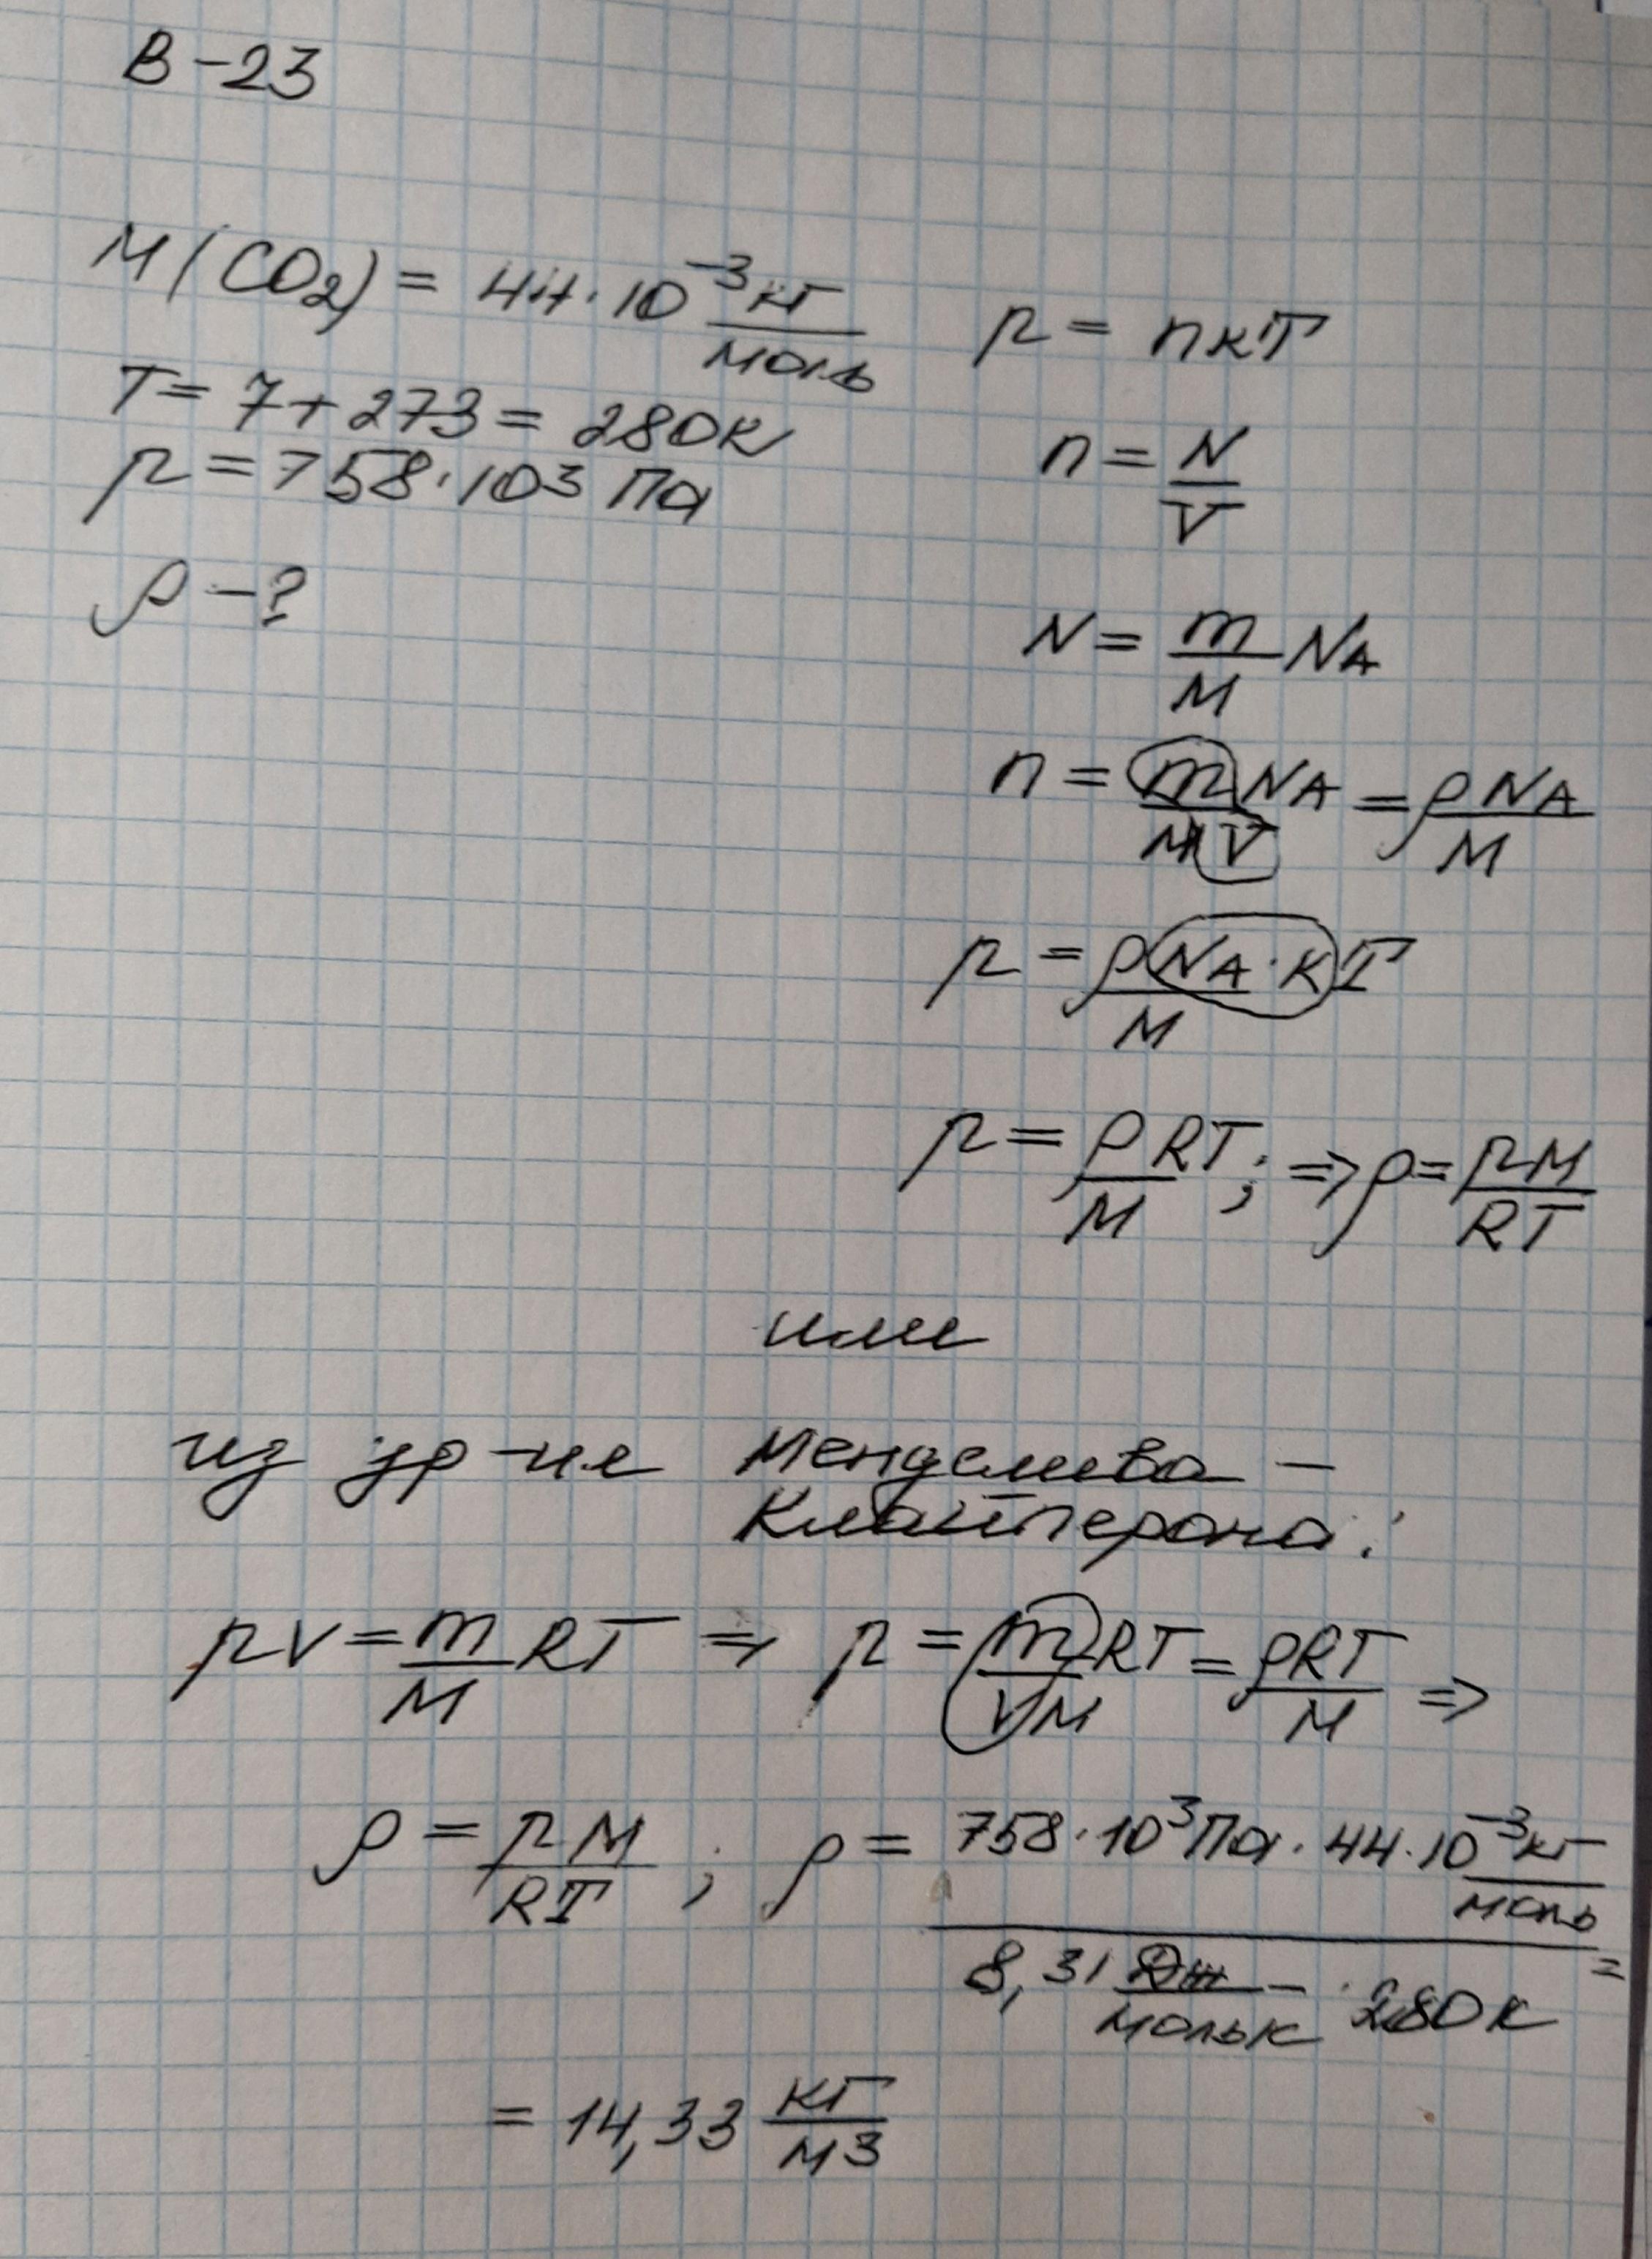 В-23
M(CO₂) = 44·10⁻³ кг/моль
T = 7+273 = 280К
p = 758·10³ Па
ρ - ?
p = nкT
n = N/V
N = m/M NA
n = mNA/MV = ρNA/M
p = ρNA·кT/M
p = ρRT/M; => ρ = pM/RT
или
из ур-ие Менделеева -
Клайперона:
pV = m/M RT => p = m/VM RT = ρRT/M =>
ρ = pM/RT ; ρ = 758·10³Па·44·10⁻³ кг/моль / 8,31 Дж/мольК · 280К =
= 14,33 кг/м3